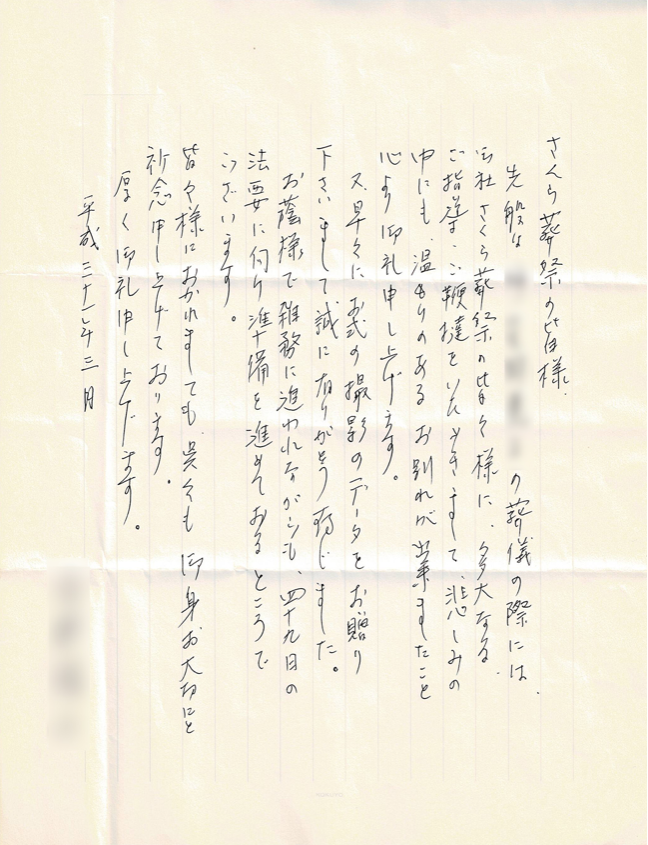 さくら葬祭の皆様
先般は の葬儀の際には、
御社さくら葬祭の皆々様に、多大なる
ご指導・ご鞭撻をいただきまして、悲しみの
中にも、温もりのあるお別れが出来ましたこと
心より御礼申し上げます。
又、早々にお式の撮影のデータをお贈り
下さいまして誠に有りがとう存じました。
お蔭様で雑務に追われながらも、四十九日の
法要に向け準備を進めておるところで
ございます。
皆々様におかれましても、呉々も御身お大切にと
祈念申し上げております。
厚く御礼申し上げます。
平成三十一年三月